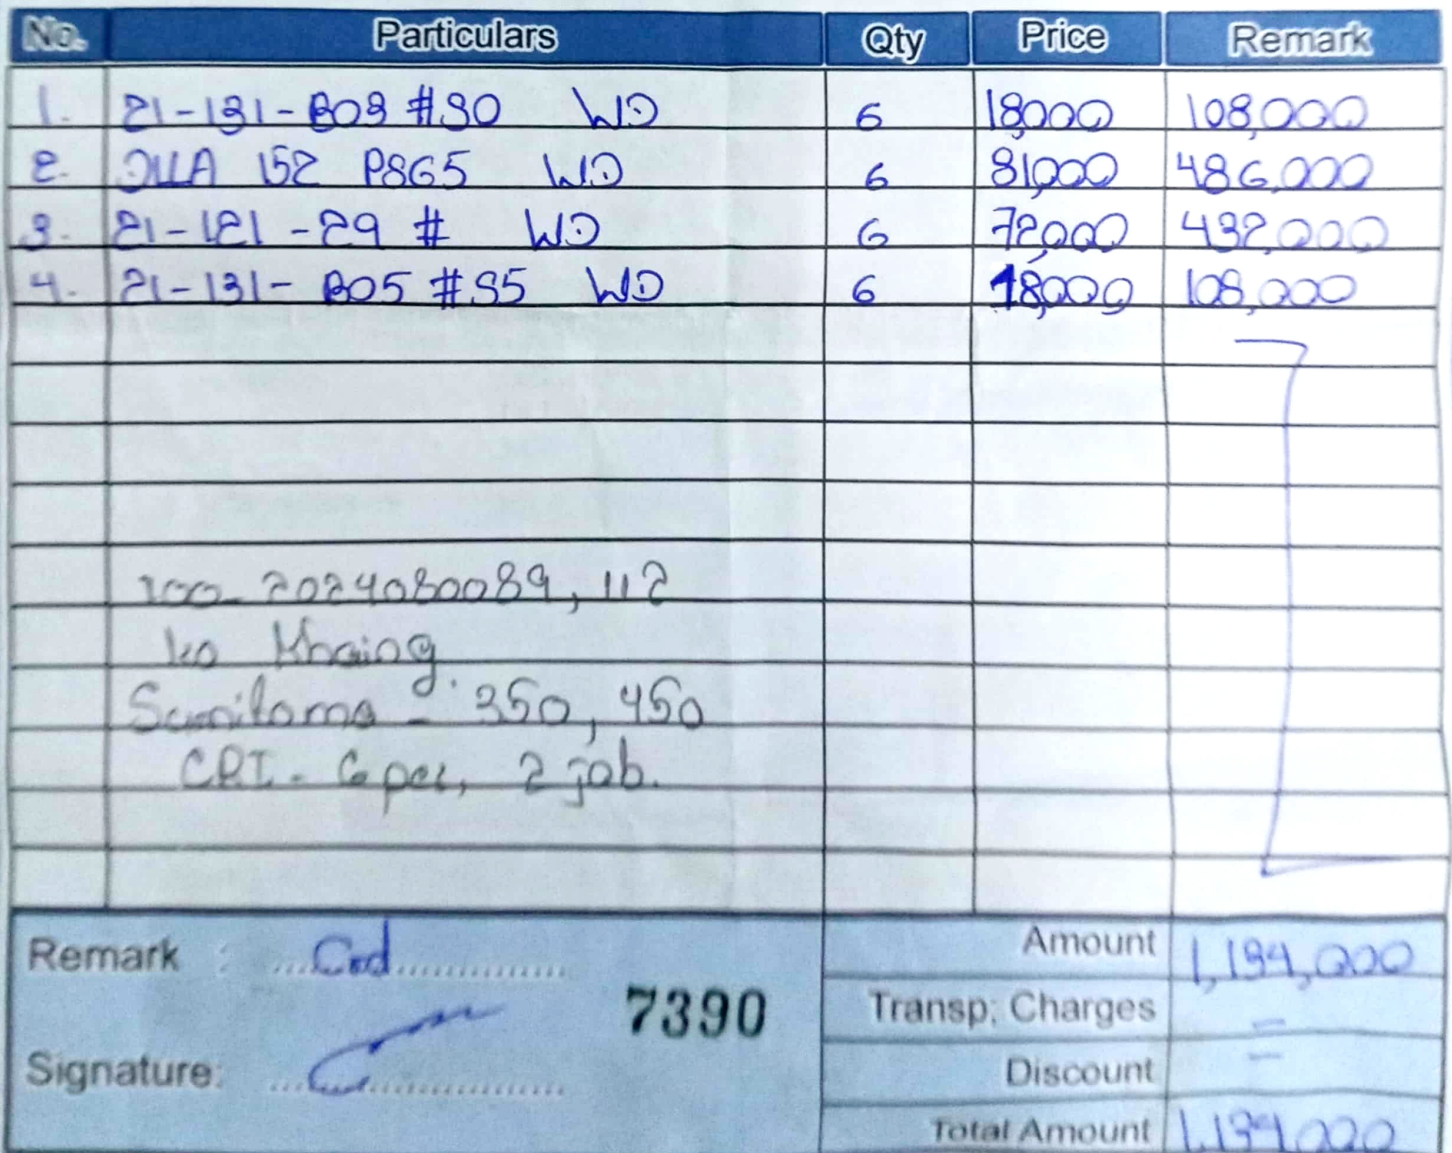 No. Particulars Qty Price Remark
1. 21-131-B03 #30 WD 6 18,000 108,000
2. DLLA 152 P865 WD 6 81,000 486,000
3. 21-121-29 # WD 6 72,000 432,000
4. 21-131-B05 #35 WD 6 18,000 108,000
2024080089, 112
ko Khaing.
Sumitomo - 350, 450
CRI - 6 pcs, 2 job.
Remark : Crd
Amount 1,134,000
7390
Transp; Charges -
Signature:
Discount -
Total Amount 1,134,000